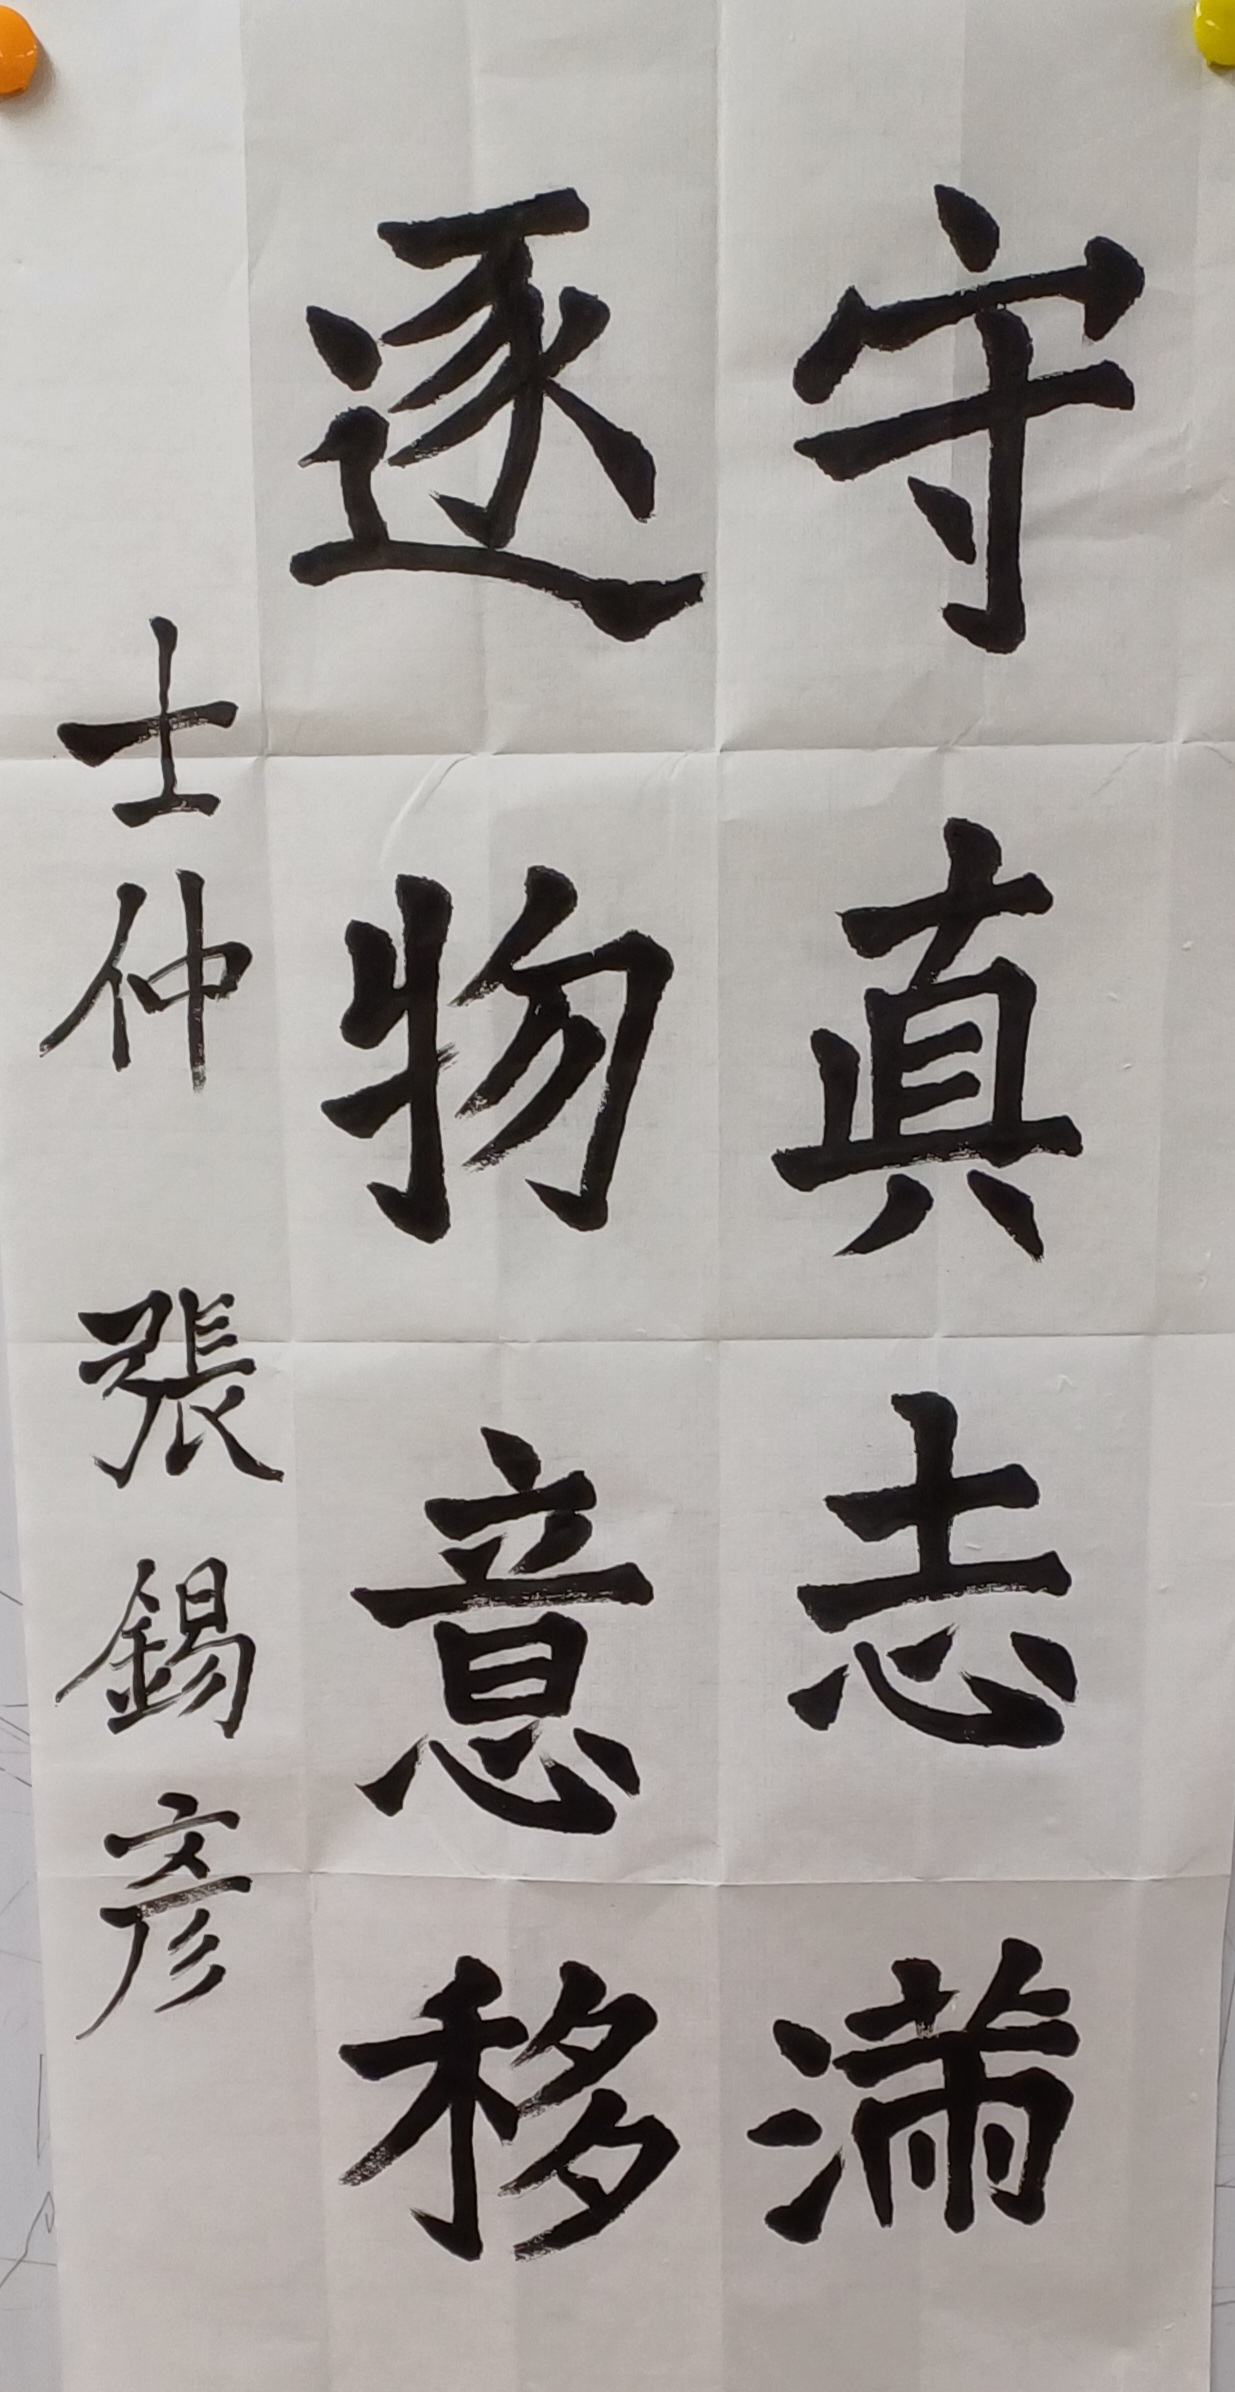 守真志满
逐物意移
士仲 張錫彦